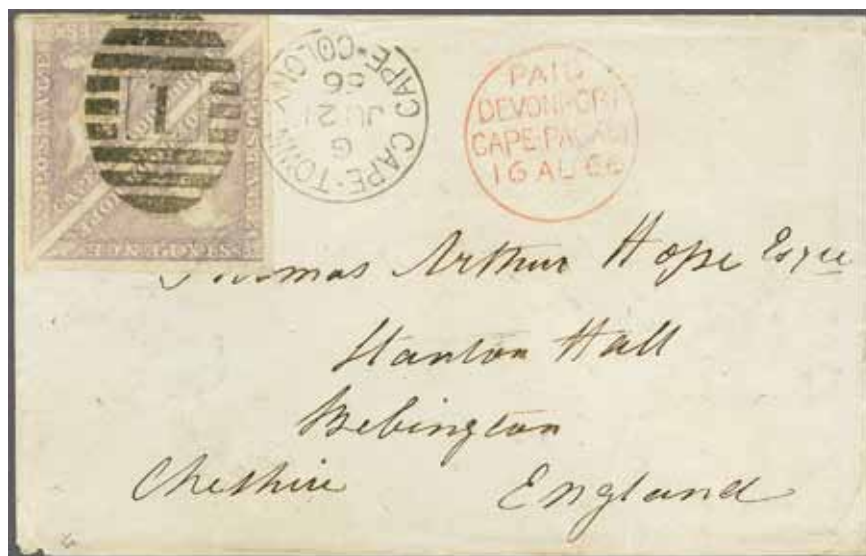 POSTAGE
SIXPENCE
POSTAGE
1
CAPE-TOWN
CAPE-COLONY
G
JU 21
66
PAID
DEVONPORT
CAPE-PACKET
16 AU 66
Thomas Arthur Hope Esqre
Stanton Hall
Bebington
Cheshire England